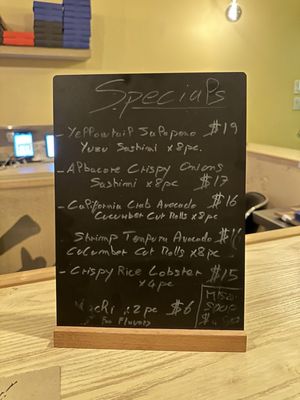 Specials
- Yellowtail Jalapeno $19
Yuzu Sashimi x8pc.
- Albacore Crispy Onions
Sashimi x8pc $17
- California Crab Avocado $16
Cucumber Cut Rolls x8pc
Shrimp Tempura Avocado
Cucumber Cut Rolls x8pc
- Crispy Rice Lobster $15
x4pc
x2pc $6
Flavors
Miso
Soup